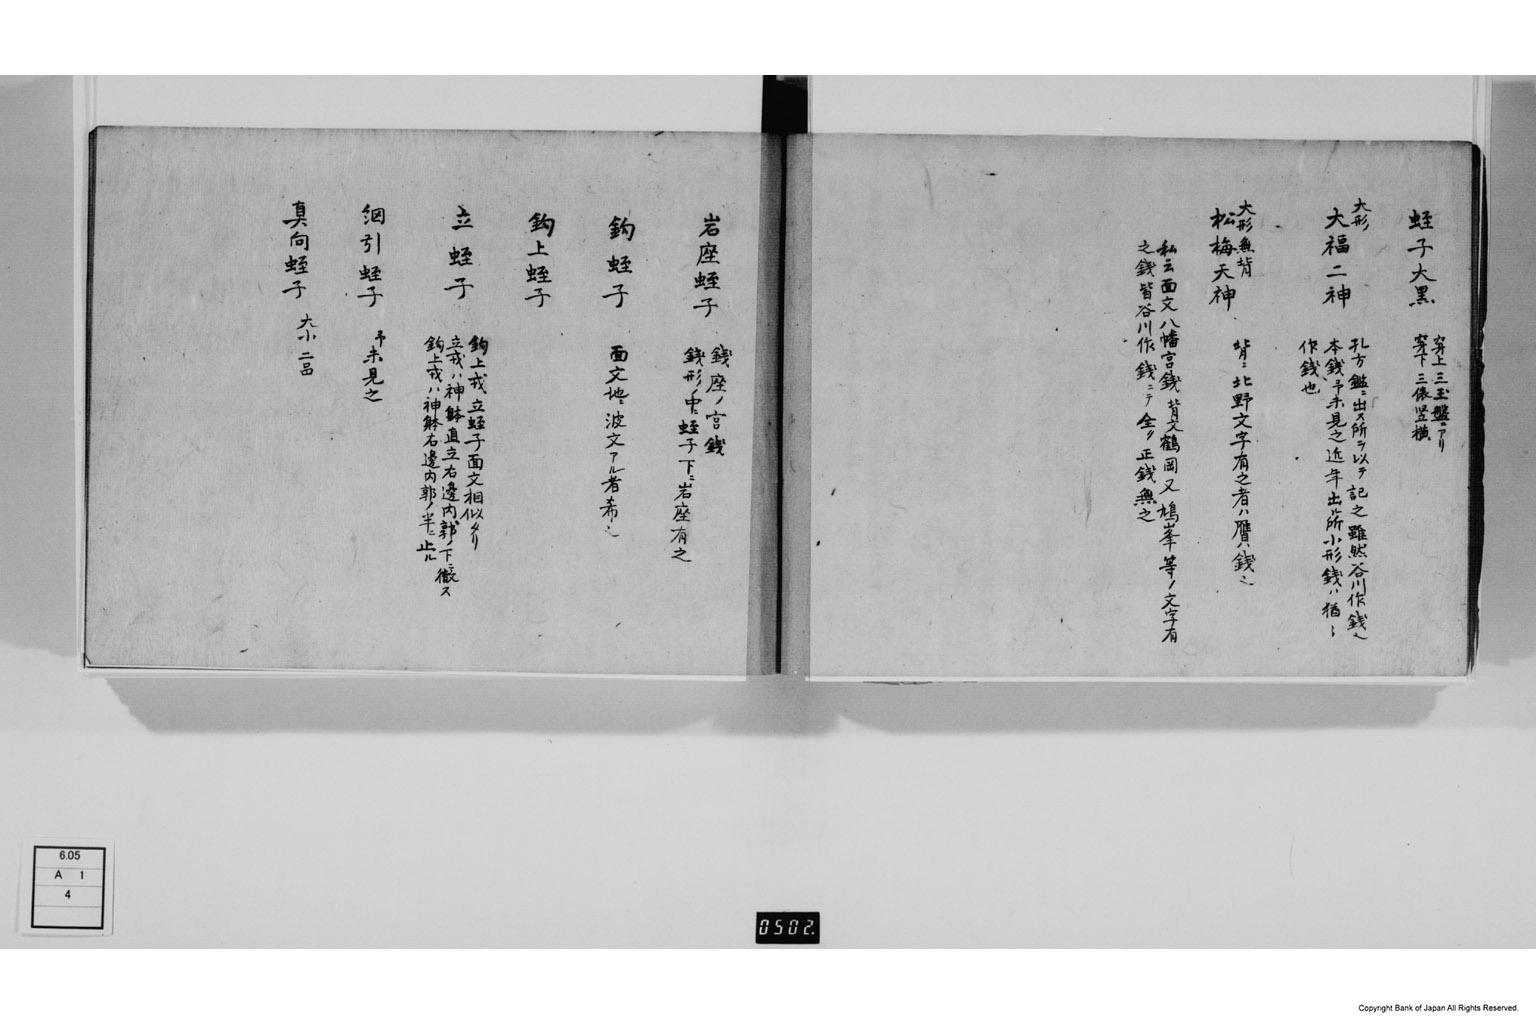 蛭子大黒
穿上三玉盤ニアリ
穿下三俵竪横
大形
大福二神
孔方鑑ニ出ス所ヲ以テ記之雖然谷川作銭也
本銭予未見之近年出ル所小形銭ハ猶
作銭也
大形無背
松梅天神
背ニ北野文字有之者ハ贋銭也
私云面文八幡宮銭背文鶴岡又鳩峯等ノ文字有
之銭皆谷川作銭ニテ全ク正銭無之
岩座蛭子
銭座ノ宮銭
銭形ノ中ニ蛭子下ニ岩座有之
鈎蛭子
面文地ニ波文アル者希也
鈎上蛭子
立蛭子
鈎上戎立蛭子面文相似タリ
立戎ハ神躰直立右邊内郭ノ下ニ徹ス
鈎上戎ハ神躰右邊内郭ノ半ニ止ル
引蛭子
予未見之
真向蛭子
大小二品
6.05
A 1
4
0502.
Copyright Bank of Japan All Rights Reserved.